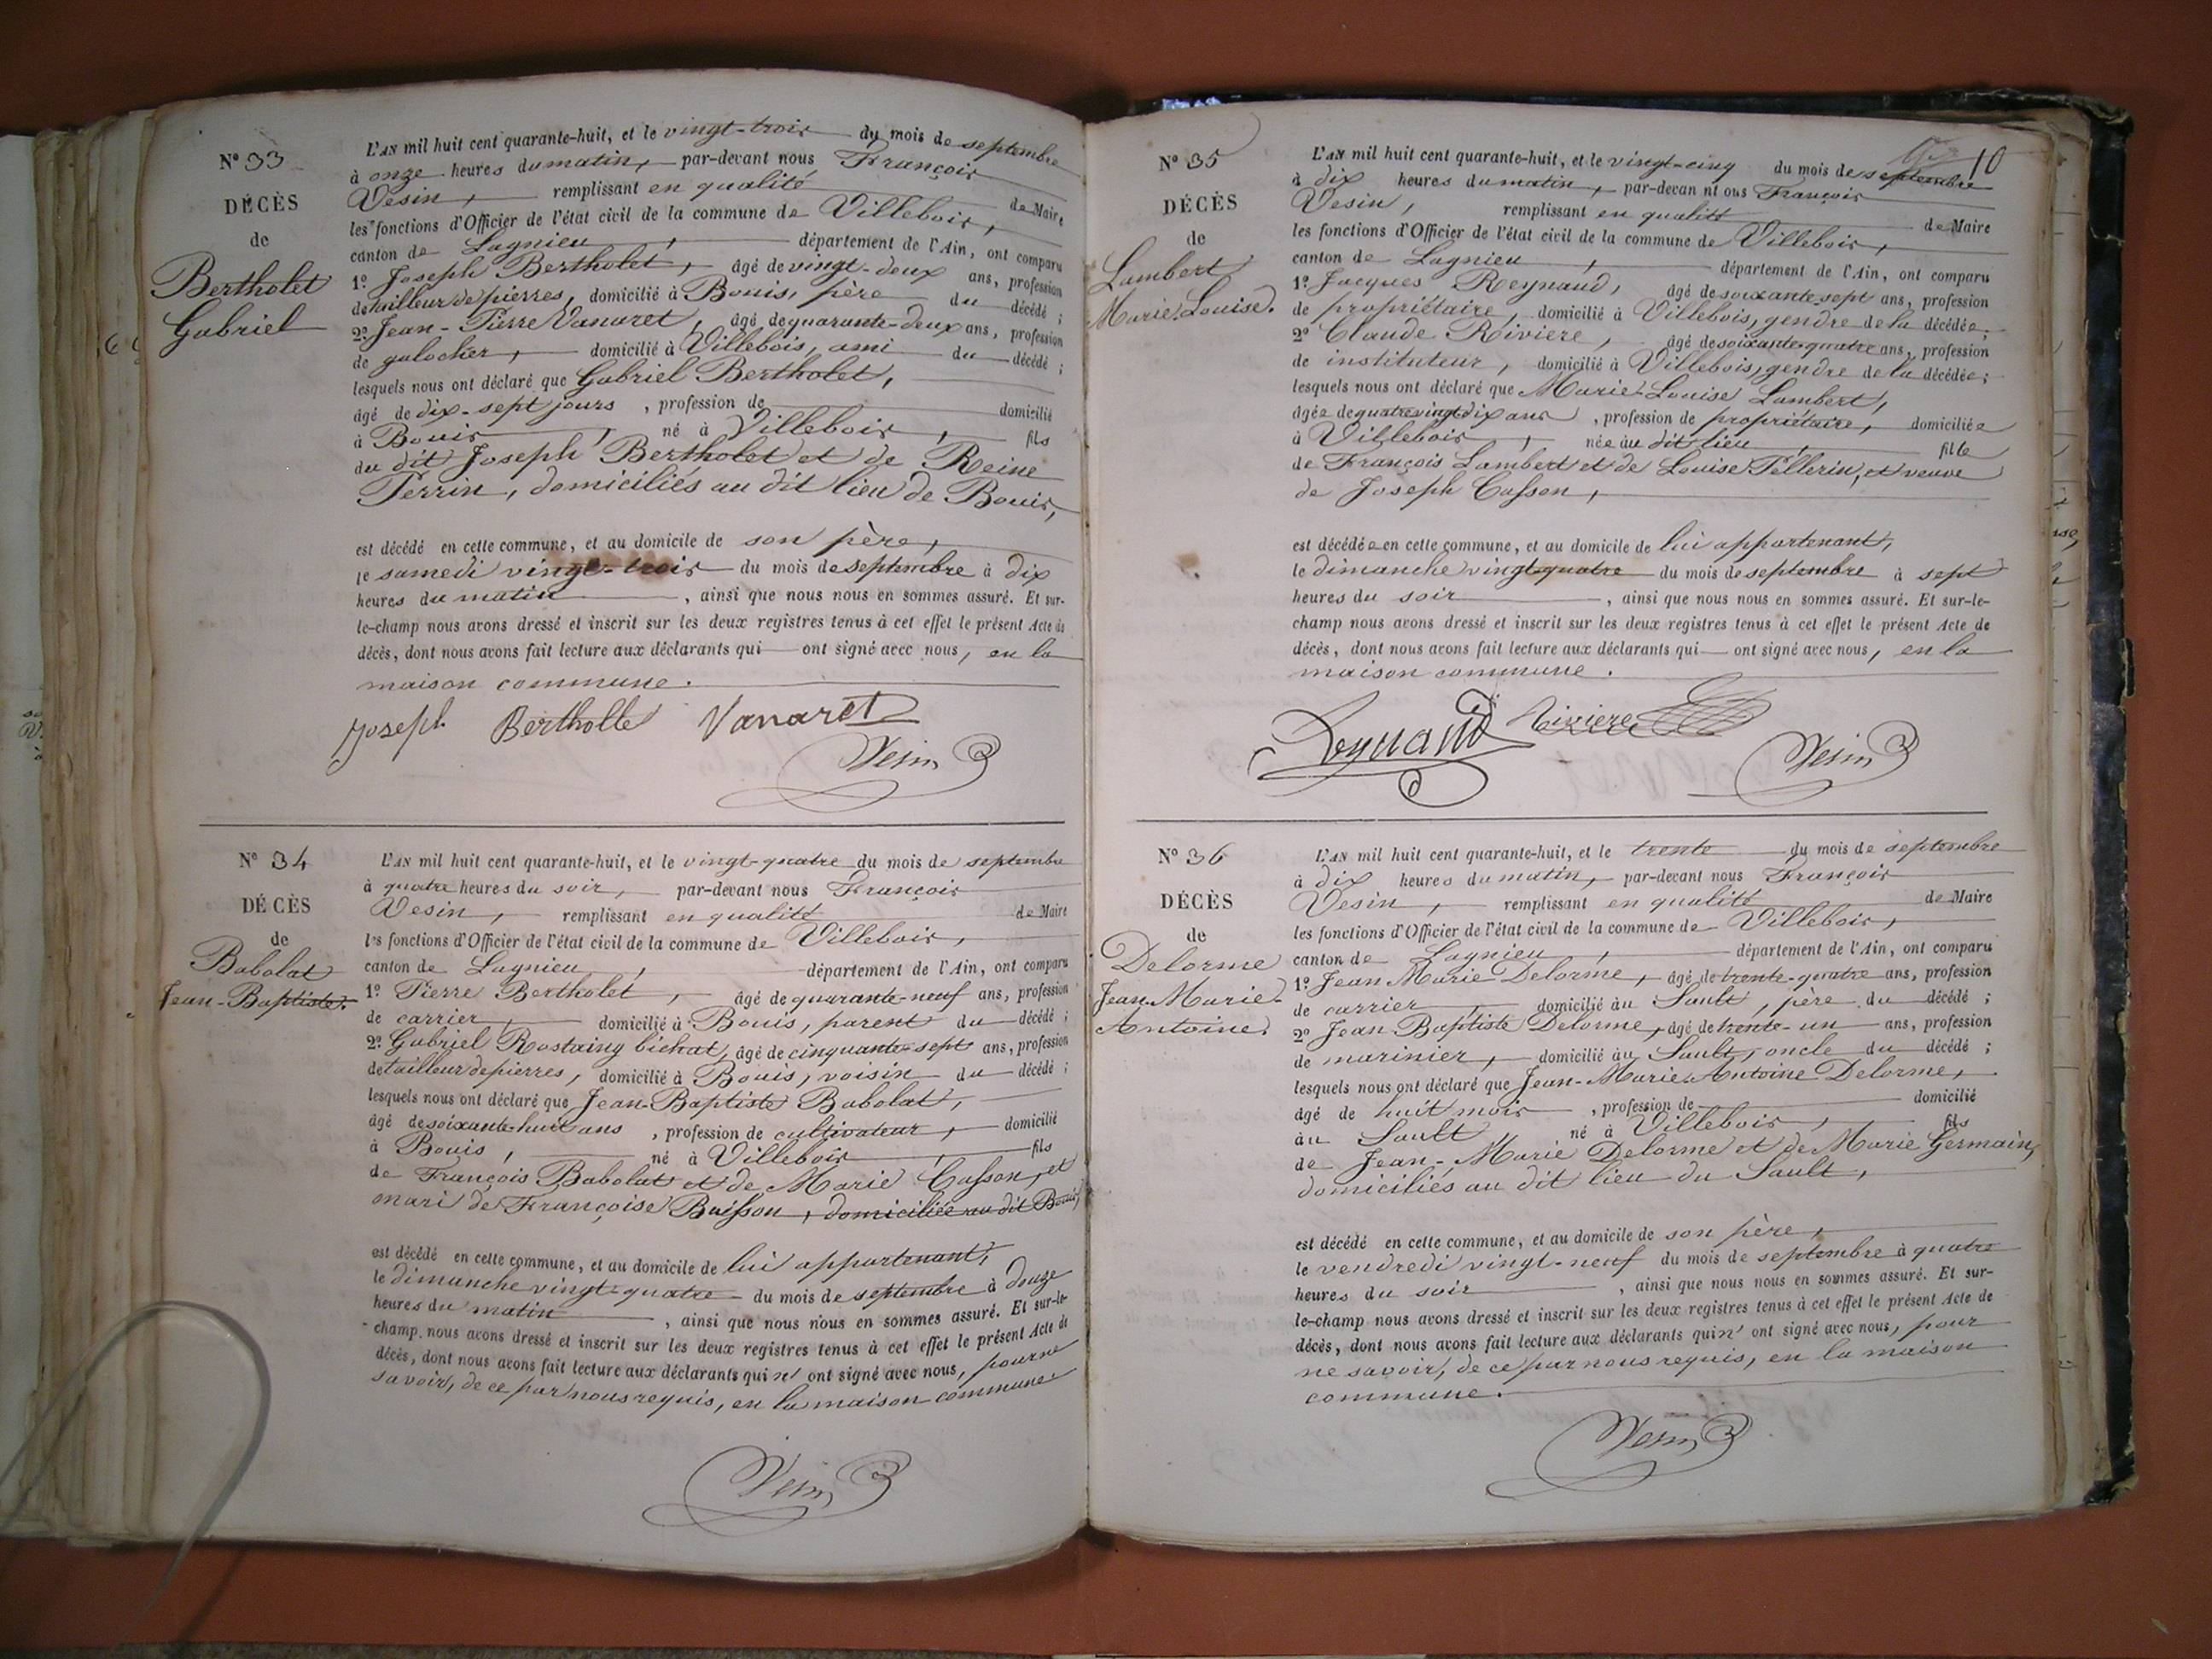 N° 33
DÉCÈS
de
Bertholet
Gabriel
L'AN mil huit cent quarante-huit, et le vingt-trois du mois de septembre
à onze heures du matin, par-devant nous François
Vesin, remplissant en qualité de Maire
les fonctions d'Officier de l'état civil de la commune de Villebois,
canton de Lagnieu, département de l'Ain, ont comparu
1° Joseph Bertholet, âgé de vingt-deux ans, profession
de tailleur de pierres, domicilié à Bouis, père du décédé ;
2° Jean-Pierre Vanaret, âgé de quarante-deux ans, profession
de galocher, domicilié à Villebois, ami du décédé ;
lesquels nous ont déclaré que Gabriel Bertholet,
âgé de dix-sept jours, profession de domicilié
à Bouis, né à Villebois, fils
du dit Joseph Bertholet et de Reine
Perrin, domiciliés au dit lieu de Bouis,
est décédé en cette commune, et au domicile de son père,
le samedi vingt-trois du mois de septembre à dix
heures du matin, ainsi que nous nous en sommes assuré. Et sur-
le-champ nous avons dressé et inscrit sur les deux registres tenus à cet effet le présent Acte de
décès, dont nous avons fait lecture aux déclarants qui ont signé avec nous, en la
maison commune.
Joseph Bertholle Vanaret
Vesin
N° 34
DÉCÈS
de
Babolat
Jean-Baptiste.
L'AN mil huit cent quarante-huit, et le vingt-quatre du mois de septembre
à quatre heures du soir, par-devant nous François
Vesin, remplissant en qualité de Maire
les fonctions d'Officier de l'état civil de la commune de Villebois,
canton de Lagnieu, département de l'Ain, ont comparu
1° Pierre Bertholet, âgé de quarante-neuf ans, profession
de carrier, domicilié à Bouis, parent du décédé ;
2° Gabriel Rostaing bichat, âgé de cinquante-sept ans, profession
de tailleur de pierres, domicilié à Bouis, voisin du décédé ;
lesquels nous ont déclaré que Jean-Baptiste Babolat,
âgé de soixante-huit ans, profession de cultivateur, domicilié
à Bouis, né à Villebois, fils
de François Babolat et de Marie Casson, et
mari de Françoise Buisson, domiciliée au dit Bouis,
est décédé en cette commune, et au domicile de lui appartenant,
le dimanche vingt-quatre du mois de septembre à douze
heures du matin, ainsi que nous nous en sommes assuré. Et sur-le-
champ nous avons dressé et inscrit sur les deux registres tenus à cet effet le présent Acte de
décès, dont nous avons fait lecture aux déclarants qui n' ont signé avec nous, pour ne
savoir, de ce par nous requis, en la maison commune.
Vesin
10
N° 35
DÉCÈS
de
Lambert
Marie Louise.
L'AN mil huit cent quarante-huit, et le vingt-cinq du mois de septembre
à dix heures du matin, par-devan nt ous François
Vesin, remplissant en qualité de Maire
les fonctions d'Officier de l'état civil de la commune de Villebois,
canton de Lagnieu, département de l'Ain, ont comparu
1° Jacques Reynaud, âgé de soixante-sept ans, profession
de propriétaire, domicilié à Villebois, gendre de la décédée ;
2° Claude Riviere, âgé de soixante-quatre ans, profession
de instituteur, domicilié à Villebois, gendre de la décédée ;
lesquels nous ont déclaré que Marie-Louise Lambert,
âgée de quatre vingt dix ans, profession de propriétaire, domiciliée
à Villebois, née au dit lieu, fille
de François Lambert et de Louise Pellerin, et veuve
de Joseph Casson,
est décédée en cette commune, et au domicile de lui appartenant,
le dimanche vingt-quatre du mois de septembre à sept
heures du soir, ainsi que nous nous en sommes assuré. Et sur-le-
champ nous avons dressé et inscrit sur les deux registres tenus à cet effet le présent Acte de
décès, dont nous avons fait lecture aux déclarants qui ont signé avec nous, en la
maison commune.
Reynaud Riviere
Vesin
N° 36
DÉCÈS
de
Delorme
Jean-Marie-
Antoine.
L'AN mil huit cent quarante-huit, et le trente du mois de septembre
à dix heures du matin, par-devant nous François
Vesin, remplissant en qualité de Maire
les fonctions d'Officier de l'état civil de la commune de Villebois,
canton de Lagnieu, département de l'Ain, ont comparu
1° Jean Marie Delorme, âgé de trente-quatre ans, profession
de carrier, domicilié àu Sault, père du décédé ;
2° Jean-Baptiste Delorme, âgé de trente-un ans, profession
de marinier, domicilié àu Sault, oncle du décédé ;
lesquels nous ont déclaré que Jean-Marie-Antoine Delorme,
âgé de huit mois, profession de domicilié
àu Sault né à Villebois, fils
de Jean-Marie Delorme et de Marie Germain,
domiciliés au dit lieu du Sault,
est décédé en cette commune, et au domicile de son père,
le vendredi vingt-neuf du mois de septembre à quatre
heures du soir, ainsi que nous nous en sommes assuré. Et sur-
le-champ nous avons dressé et inscrit sur les deux registres tenus à cet effet le présent Acte de
décès, dont nous avons fait lecture aux déclarants qui n' ont signé avec nous, pour
ne savoir, de ce par nous requis, en la maison
commune.
Vesin